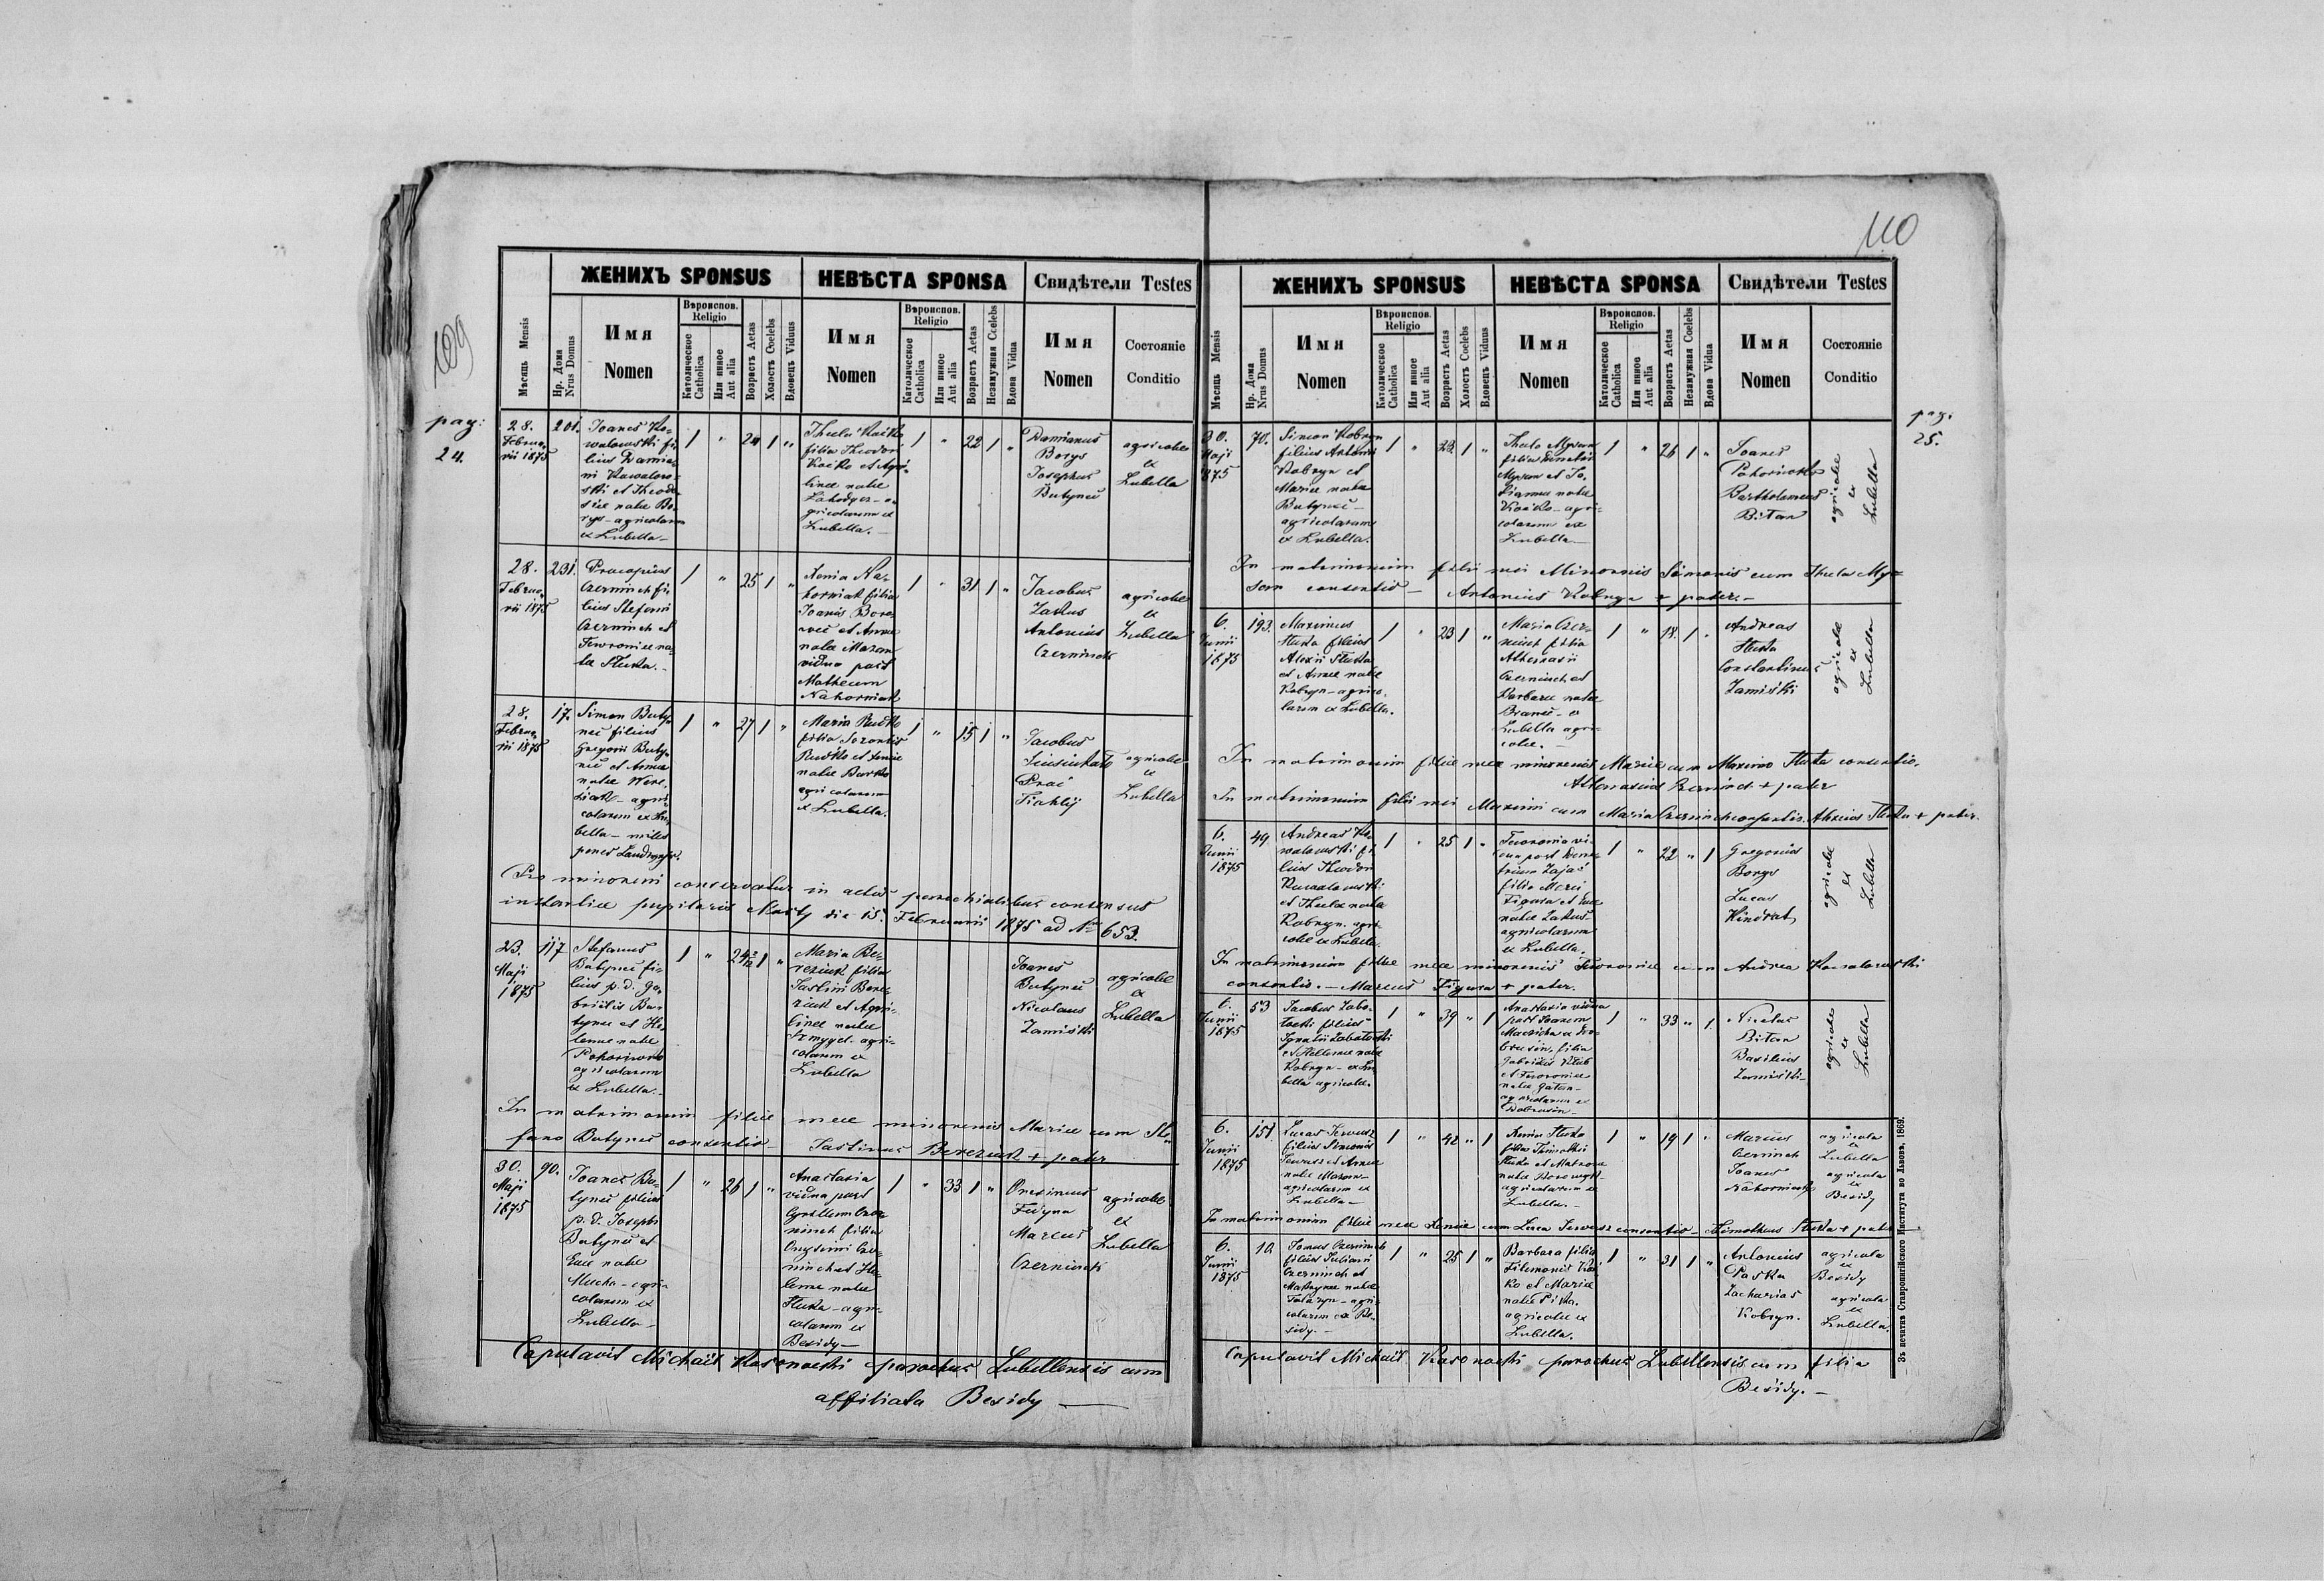 109
pag:
24.
ЖЕНИХЪ SPONSUS
НЕВѢСТА SPONSA
Свидѣтели Testes
Мѣсяць Mensis
Нр. Дома
Nrus Domus
Имя
Nomen
Вѣроиспов.
Religio
Католическое
Catholica
Или иное
Aut alia
Возрастъ Aetas
Холостъ Coelebs
Вдовецъ Viduus
Имя
Nomen
Вѣроиспов.
Religio
Католическое
Catholica
Или иное
Aut alia
Возрастъ Aetas
Незамужная Coelebs
Вдова Vidua
Имя
Nomen
Состоянiе
Conditio
28.
Februa-
rii 1875
201.
Joanes Ko-
walowski fi-
lius Damia-
ni Kowalow-
ski et Theodo-
siae natae Bo-
rys - agricolarum
ex Lubella -
1 " 24 1 "
Thecla Koćko
filia Theodori
Koćko et Agri-
pinae natae
agricolarum ex
Lubella. -
1 " 22 1 "
Damianus
Borys
Josephus
Butyneć
agricolae
ex
Lubella
28.
Februa-
rii 1875
231.
Procopius
Czerninch fi-
lius Stefani
Czerninch et
Fewroniae na-
tae Stuka. -
1 " 25 1 "
Xenia Na-
horniak filia
Joanis Bore-
et Annae
natae Mazan
vidua post
Matheum
Nahorniak
1 " 31 1 "
Jacobus
Zakus
Antonius
Czerninch
agricolae
ex
Lubella
28.
Februa-
rii 1875
17.
Simon Buty-
neć filius
Gregorii Buty-
neć et Annae
natae
agri-
colarum ex Lu-
bella - miles
penes
1 " 27 1 "
Maria Rudko
filia
Rudko et Xeniae
natae Burko
agricolarum
ex Lubella.
1 " 15 1 "
Jacobus
agricolae
ex
Lubella
Pro minoreni conservatur in actis parochialibus consensus
instantiae pupilaris Mosty die 15. Februarii 1875 ad Nrm 653.
23.
Maji
1875
117
Stefanus
Butyneć fi-
lius p. d. Ga-
brielis Bu-
tyneć et He-
lenae natae
Pohoriwsko
agricolarum
ex Lubella. -
1 " 24 1 "
Maria Be-
reziuk filia
Justini Bere-
ziuk et Agri-
pinae natae
agri-
colarum ex
Lubella
Joanes
Butyneć
Nicolaus
Zamiski
agricolae
ex
Lubella
In matrimonium filiae meae minorenis Mariae cum Ste-
fano Butyneć consentio - Justinus Bereziuk + pater
30.
Maji
1875
90.
Joanes Bu-
tyneć filius
p. d. Josephi
Butyneć et
Evae natae
Mucha - agri-
colarum ex
Lubella -
1 " 26 1 "
Anastasia
vidua post
Cyrillum Czer-
ninch filia
Onysimi Czer-
ninch et He-
lenae natae
Stuka - agri-
colarum ex
Besidy -
1 " 33 1 "
Onesimus
Fedyna
Marcus
Czerninch
agricolae
ex
Lubella
Copulavit Michaël Kosonocki parochus Lubellensis cum
affiliata Besidy -
110
pag.
25.
ЖЕНИХЪ SPONSUS
НЕВѢСТА SPONSA
Свидѣтели Testes
Мѣсяць Mensis
Нр. Дома
Nrus Domus
Имя
Nomen
Вѣроиспов.
Religio
Католическое
Catholica
Или иное
Aut alia
Возрастъ Aetas
Холостъ Coelebs
Вдовецъ Viduus
Имя
Nomen
Вѣроиспов.
Religio
Католическое
Catholica
Или иное
Aut alia
Возрастъ Aetas
Незамужная Coelebs
Вдова Vidua
Имя
Nomen
Состоянiе
Conditio
30.
Maji
1875
70.
Simon Kobryn
filius Antonii
Kobryn et
Mariae natae
Butyneć -
agricolarum
ex Lubella.
1 " 23 1 "
Thecla Myson
filia
Myson et Ta-
tiannae natae
Koćko - agri-
colarum ex
Lubella -
1 " 26 1 "
Joanes
Pohoriwsko
Bartholomeus
Bitan
agricolae
ex
Lubella
In matrimonium filii mei Minorenis Simonis cum Thecla My-
son consentio - Antonius Kobryn + pater. -
6.
Junii
1875
193.
Maximus
Stuka filius
Alexii Stuka
et Annae natae
Kobryn - agrico-
larum ex Lubella.
1 " 23 1 "
Maria Czer-
ninch filia
Athanasii
Czerninch et
Barbarae natae
Braneć - ex
Lubella agri-
colae. -
1 " 18. 1 "
Andreas
Stuka
Constantinus
Zamiski
agricolae
ex
Lubella
In matrimonium filiae meae minorenis Mariae cum Maximo Stuka consentio.
Athanasius Czerninch + pater
In matrimonium filii mei Maximi cum Maria Czerninch consentio. Alexius Stuka + pater.
6.
Junii
1875
49
Andreas Ko-
walowski fi-
lius Theodori
Kowalowski
et Theclae natae
Kobryn - agri-
colae ex Lubella.
1 " 25 1 "
Fewronia vi-
dua post Deme-
trium Zajać
filia Marci
Figura et Evae
natae Zakus -
agricolarum
ex Lubella.
1 " 22 " 1
Gregorius
Borys
Lucas
Kindrat
agricolae
ex
Lubella
In matrimonium filiae meae minorenis Fewroniae cum Andrea Kowalowski
consentio. - Marcus Figura + pater.
6.
Junii
1875
53
Jacobus Zabo-
locki filius
Ignatii Zabolocki
et Hellenae natae
Kobryn - ex Lu-
bella agricolae.
1 " 39 " 1
Anastasia vidua
post Joanem
ex Do-
brusin, filia
Gabrielis
et Fewroniae
natae
agricolarum ex
Dobrusin -
1 " 33 " 1.
Nicolaus
Bitan
Basilius
Zamiski -
agricolae
ex
Lubella
6.
Junii
1875
151
Lucas
filius Simonis
et Annae
natae Mazan -
agricolarum ex
Lubella -
1 " 42 " 1
Xenia Stuka
filia Timothei
Stuka et Matronae
natae
agricolarum ex
Lubella. -
1 " 19 1 "
Marcus
Czerninch
Joanes
Nahorniak
agricola
ex
Lubella
agricola
ex
Besidy
In matrimonium filiae meae Xeniae cum Luca consentio - Timotheus Stuka + pater -
6.
Junii
1875
10.
Tomas Czerninch
filius Juliani
Czerninch et
natae
agri-
colarum ex Be-
sidy. -
1 " 25 1 "
Barbara filia
Filemonis Koć-
ko et Mariae
natae Piska.
agricolae ex
Lubella.
1 " 31 1 "
Antonius
Paska
Zacharias
Kobryn.
agricola
ex
Besidy
agricola
ex
Lubella.
Copulavit Michaël Kosonocki parochus Lubellensis cum filia
Besidy. -
Зъ печатнѣ Ставропигійского Института во Львовѣ, 1869.